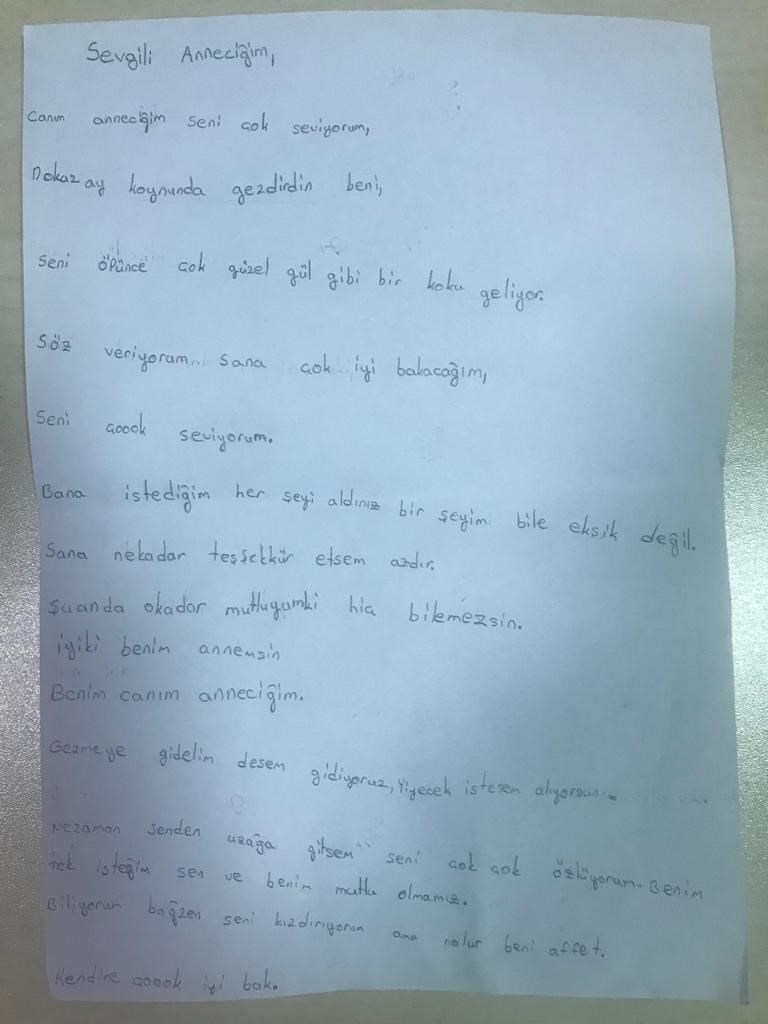 Sevgili Anneciğim,
Canım anneciğim seni çok seviyorum,
Dokuz ay koynunda gezdirdin beni,
Seni öpünce çok güzel gül gibi bir koku geliyor.
Söz veriyorum sana çok iyi bakacağım,
Seni çoook seviyorum.
Bana istediğim her şeyi aldınız bir şeyim bile eksik değil.
Sana nekadar teşşekkür etsem azdır.
Şuanda okadar mutluyumki hiç bilemezsin.
iyiki benim annemsin
Benim canım anneciğim.
Gezmeye gidelim desem gidiyoruz, Yiyecek istesem alıyorsun.
Nezaman senden uzağa gitsem seni çok çok özlüyorum. Benim
tek isteğim sen ve benim mutlu olmamız.
Biliyorum bağzen seni kızdırıyorum ama nolur beni affet.
Kendine çoook iyi bak.